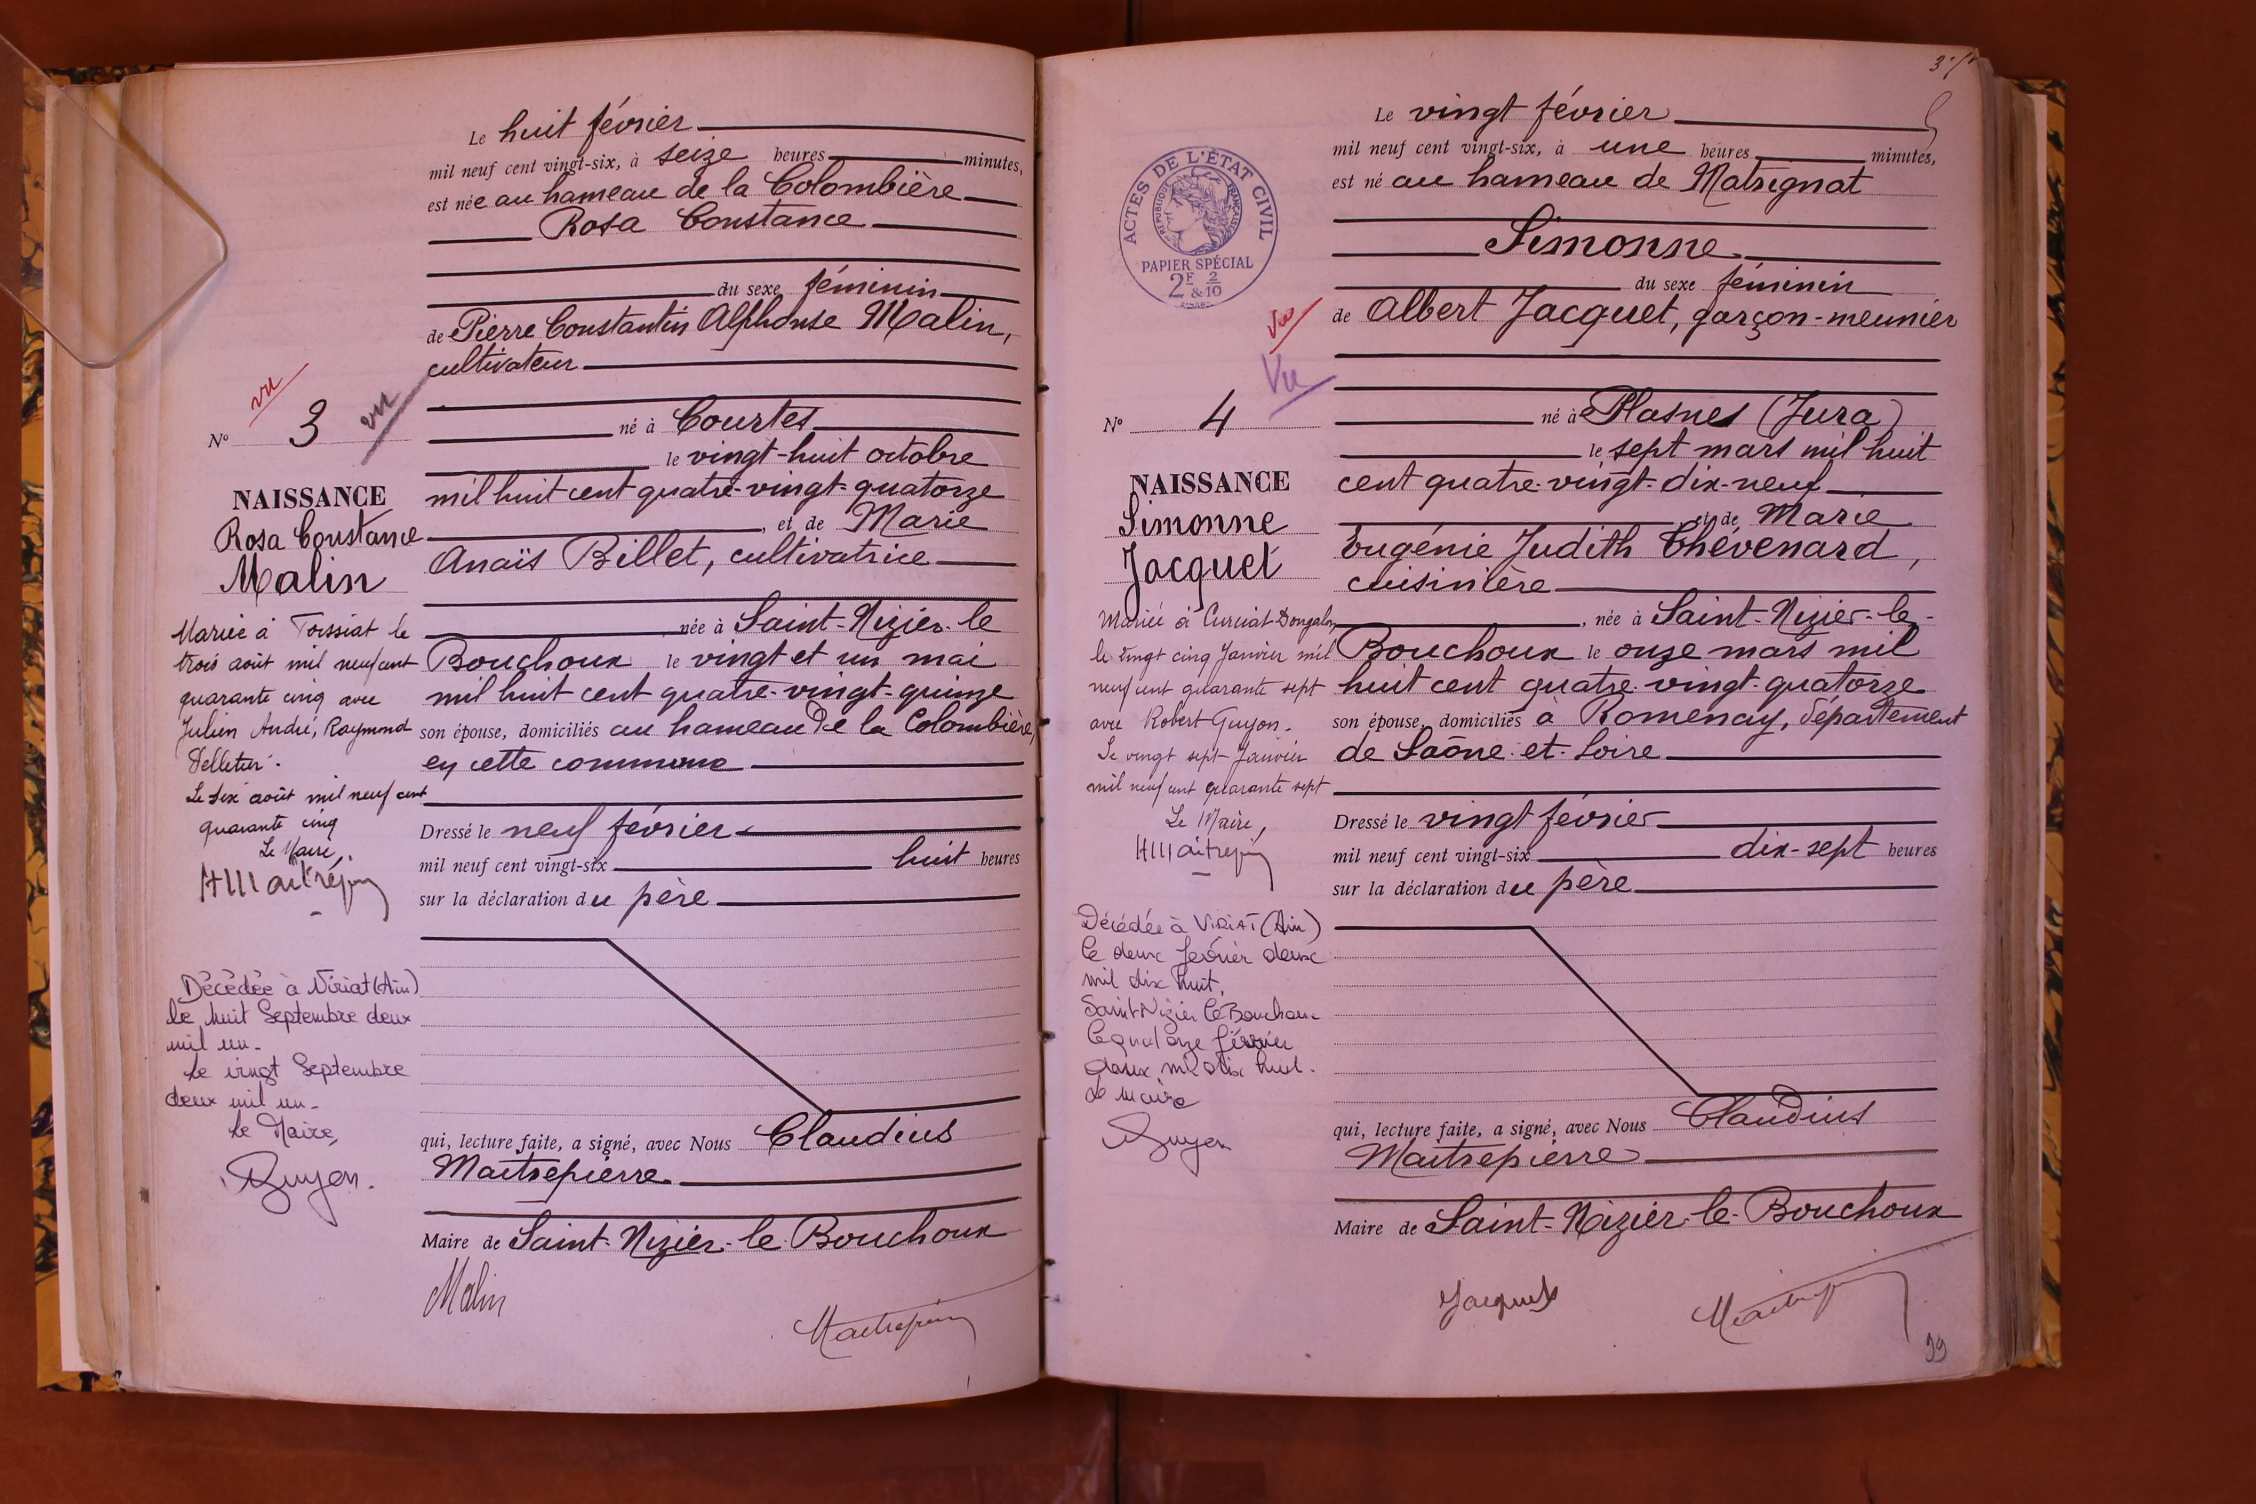 Le huit février
mil neuf cent vingt-six, à seize heures minutes,
est née au hameau de la Colombière
Rosa Constance
du sexe féminin
de Pierre Constantin Alphonse Malin,
cultivateur
né à Courtes
le vingt-huit octobre
mil huit cent quatre-vingt-quatorze
, et de Marie
Anaïs Billet, cultivatrice
née à Saint-Nizier-le
Bouchoux le vingt et un mai
mil huit cent quatre-vingt-quinze
son épouse, domiciliés au hameau de la Colombière,
en cette commune
Dressé le neuf février
mil neuf cent vingt-six huit heures
sur la déclaration du père
qui, lecture faite, a signé, avec Nous Claudius
Maitrepierre
Maire de Saint-Nizier-le-Bouchoux
Malin
vu
vu
N° 3
NAISSANCE
Rosa Constance
Malin
Mariée à Tossiat le
trois août mil neuf cent
quarante cinq avec
Julien André, Raymond
Pelletier.
Le six août mil neuf cent
quarante cinq
Le Maire,
Décédée à Viriat (Ain)
le huit Septembre deux
mil un-
le vingt Septembre
deux mil un-
le Maire,
Guyon.
Le vingt février
mil neuf cent vingt-six, à une heures minutes,
est né au hameau de Matrignat
Simonne
du sexe féminin
de Albert Jacquet, garçon-meunier
né à Plasnes (Jura)
le sept mars mil huit
cent quatre-vingt-dix-neuf
et de Marie
Eugénie Judith Thévenard,
cuisinière
, née à Saint-Nizier-le-
Bouchoux le onze mars mil
huit cent quatre-vingt-quatorze
son épouse, domiciliés à Romenay, département
de Saône-et-Loire
Dressé le vingt février
mil neuf cent vingt-six dix-sept heures
sur la déclaration du père
qui, lecture faite, a signé, avec Nous Claudius
Maitrepierre
Maire de Saint-Nizier-le-Bouchoux
Jacquet
39
ACTES DE L'ÉTAT CIVIL
RÉPUBLIQUE FRANÇAISE
PAPIER SPÉCIAL
2F & 2/10
Vu
Vu
N° 4
NAISSANCE
Simonne
Jacquet
Mariée à Curciat-Dongalon
le vingt cinq Janvier mil
neuf cent quarante sept
avec Robert Guyon.
Le vingt sept Janvier
mil neuf cent quarante sept
Le Maire,
Décédée à VIRIAT (Ain)
le deux février deux
mil dix huit.
Saint Nizier le Bouchoux
le quatorze février
deux mil dix huit.
Le maire
Guyon